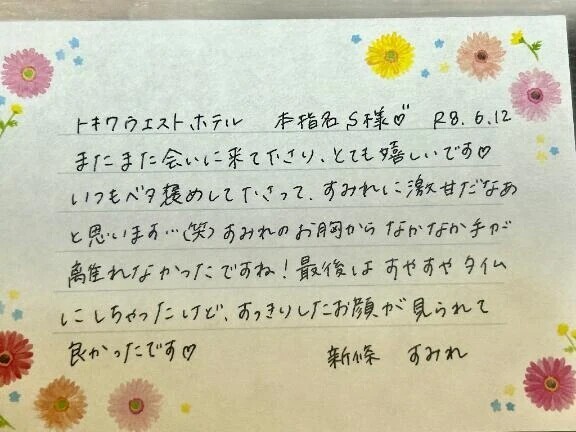 トキワウエストホテル 本指名S様♡ R8.6.12
またまた会いに来て下さり、とても嬉しいです♡
いつもベタ褒めして下さって、すみれに激甘だなあ
と思います…(笑)すみれのお胸からなかなか手が
離れなかったですね！最後はすやすやタイム
にしちゃったけど、すっきりしたお顔が見られて
良かったです♡ 新條 すみれ